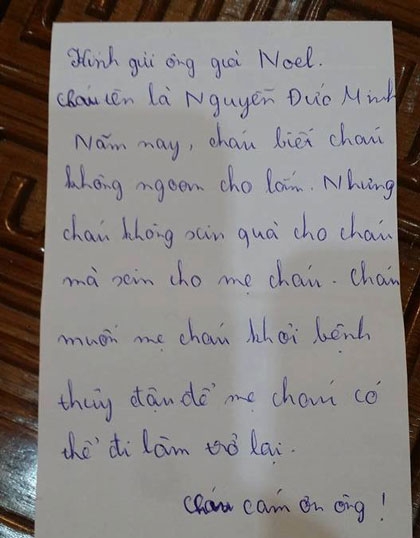 Kính gửi ông già Noel.
Cháu tên là Nguyễn Đức Minh
Năm nay, cháu biết cháu
không ngoan cho lắm. Nhưng
cháu không xin quà cho cháu
mà xin cho mẹ cháu. Cháu
muốn mẹ cháu khỏi bệnh
thủy đậu để mẹ cháu có
thể đi làm trở lại.
Cháu cảm ơn ông!